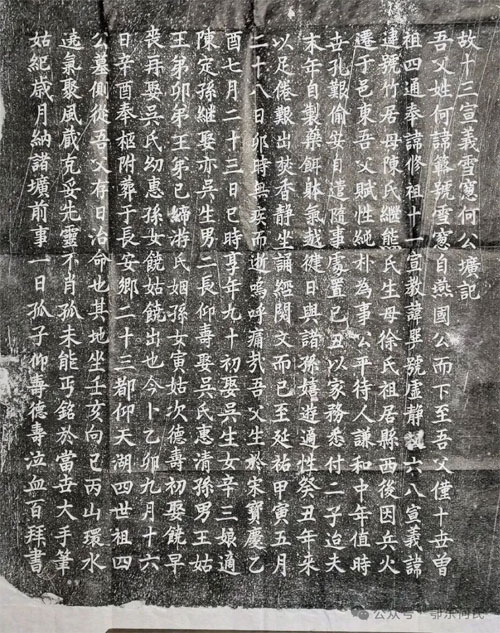 故十三宣義雪窻何公壙記
吾父姓何諱簵號雪窻自燕國公而下至吾父僅十世曾
祖四通奉諱修祖十一宣教諱畢號虛靜 六八宣義諱
逮號竹居母陳氏繼熊氏生母徐氏祖居縣西後因兵火
遷于邑東吾父賦性純朴為事公平待人謙和中年值時
世孔艱偷安自遣隨事處置己丑以家務悉付二子迨夫
末年自製藥餌躰氣越健日與諸孫嬉遊適性癸丑年來
以足倦艱出焚香靜坐誦經閱文而已至延祐甲寅五月
二十八日卯時無疾而逝嗚呼痛哉吾父生於宋寶慶乙
酉七月二十三日巳時享年九十初娶吳生女辛三娘適
陳定孫繼娶亦吳生男二長仰壽娶吳氏惠清孫男王姑
王弟卯弟王弟已締游氏姻孫女寅姑次德壽初娶饒早
喪再娶吳氏幼惠孫女饒姑饒出也今卜乙卯九月十六
日辛酉奉柩附葬于長安鄉二十三都仰天湖四世祖四
公墓側從吾父存日治命也其地坐壬亥向巳丙山環水
遶氣聚風藏克妥先靈不肖孤未能丐銘於當世大手筆
姑紀歲月納諸壙前事一日孤子仰壽德壽泣血百拜書
公众号·鄂东何氏